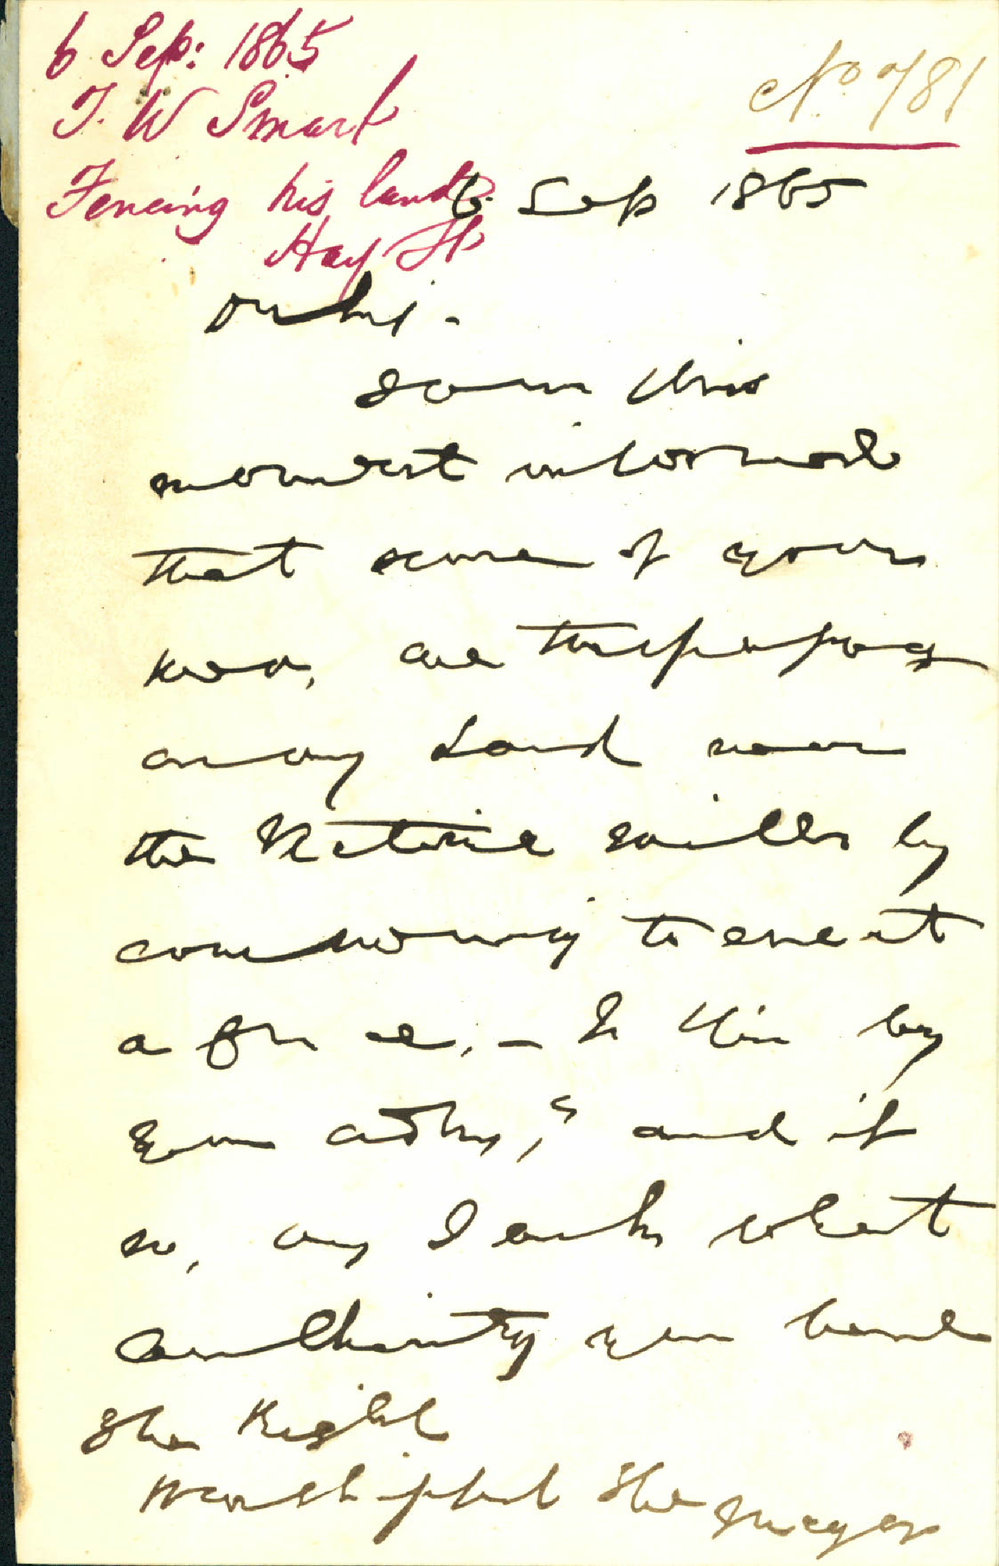 6 Sep: 1865
T. W Smart
Fencing his land
Hay St
No 781
6. Sep 1865
I am this
moment informed
that some of your
men, are trespassing
on my Land near
the Victoria Mills by
commencing to erect
a fence, - Is this by
your and if
so, may I ask what
authority you have
The Right
Worshipful The Mayor